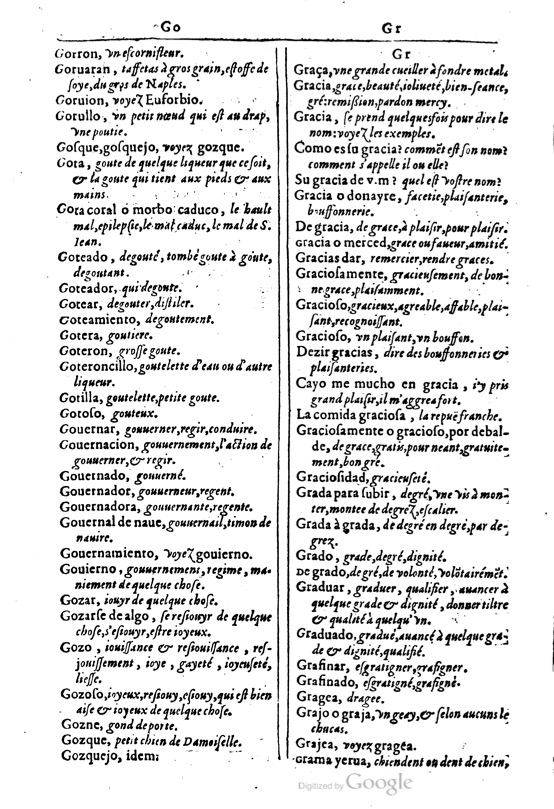 Go
Gorron, vn escornifleur.
Goruaran, taffetas à gros grain, estoffe de
soye, du gros de Naples.
Goruion, voyez Euforbio.
Gorullo, vn petit nœud qui est au drap,
vne poutie.
Gosque, gosquejo, voyez gozque.
Gota, goute de quelque liqueur que ce soit,
& la goute qui tient aux pieds & aux
mains.
Gota coral o morbo caduco, le hault
mal, epilepsie, le mal caduc, le mal de S.
Iean.
Goteado, degouté, tombé goute à goute,
degoutant.
Goteador, qui degoute.
Gotear, degouter, distiler.
Goteamiento, degoutement.
Gotera, goutiere.
Goteron, grosse goute.
Goteroncillo, goutelette d'eau ou d'autre
liqueur.
Gotilla, goutelette, petite goute.
Gotoso, gouteux.
Gouernar, gouuerner, regir, conduire.
Gouernacion, gouuernement, l'action de
gouuerner, & regir.
Gouernado, gouuerné.
Gouernador, gouuerneur, regent.
Gouernadora, gouuernante, regente.
Gouernal de naue, gouuernail, timon de
nauire.
Gouernamiento, voyez gouierno.
Gouierno, gouuernement, regime, ma-
niement de quelque chose.
Gozar, iouyr de quelque chose.
Gozarse de algo, se resiouyr de quelque
chose, s'esiouyr, estre ioyeux.
Gozo, iouissance & resiouissance, res-
jouissement, ioye, gayeté, ioyeuseté,
liesse.
Gozoso, ioyeux, resiouy, esiouy, qui est bien
aise & ioyeux de quelque chose.
Gozne, gond de porte.
Gozque, petit chien de Damoiselle.
Gozquejo, idem.
Gr
Gr
Graça, vne grande cueiller à fondre metal.
Gracia, grace, beauté, iolineté, bien-seance,
gré: remission, pardon mercy.
Gracia, se prend quelquesfois pour dire le
nom: voyez les exemples.
Como es su gracia? commēt est son nom?
comment s'appelle il ou elle?
Su gracia de v.m? quel est vostre nom?
Gracia o donayre, facetie, plaisanterie,
bouffonnerie.
De gracia, de grace, à plaisir, pour plaisir.
Gracia o merced, grace ou faueur, amitié.
Gracias dar, remercier, rendre graces.
Graciosamente, gracieusement, de bon-
ne grace, plaisamment.
Gracioso, gracieux, agreable, affable, plai-
sant, recognoissant.
Gracioso, vn plaisant, vn bouffon.
Dezir gracias, dire des bouffonneries &
plaisanteries.
Cayo me mucho en gracia, i'y pris
grand plaisir, il m'aggrea fort.
La comida graciosa, la repuë franche.
Graciosamente o gracioso, por debal-
de, de grace, gratis, pour neant, gratuite-
ment, bon gré.
Graciosidad, gracieuseté.
Grada para subir, degré, vne vis à mon-
ter, montee de degrez, escalier.
Grada à grada, de degré en degré, par de-
grez.
Grado, grade, degré, dignité.
De grado, de gré, de volonté, volōtairemēt.
Graduar, graduer, qualifier, auancer à
quelque grade & dignité, donner tiltre
& qualité à quelqu'vn.
Graduado, gradué, auancé à quelque gra-
de & dignité, qualifié.
Grafinar, esgratigner, grafigner.
Grafinado, esgratigné, grafigné.
Gragea, dragee.
Grajo o graja, vn geay, & selon aucuns le
chucas.
Grajea, voyez gragéa.
Grama yerua, chiendent ou dent de chien,
Digitized by Google